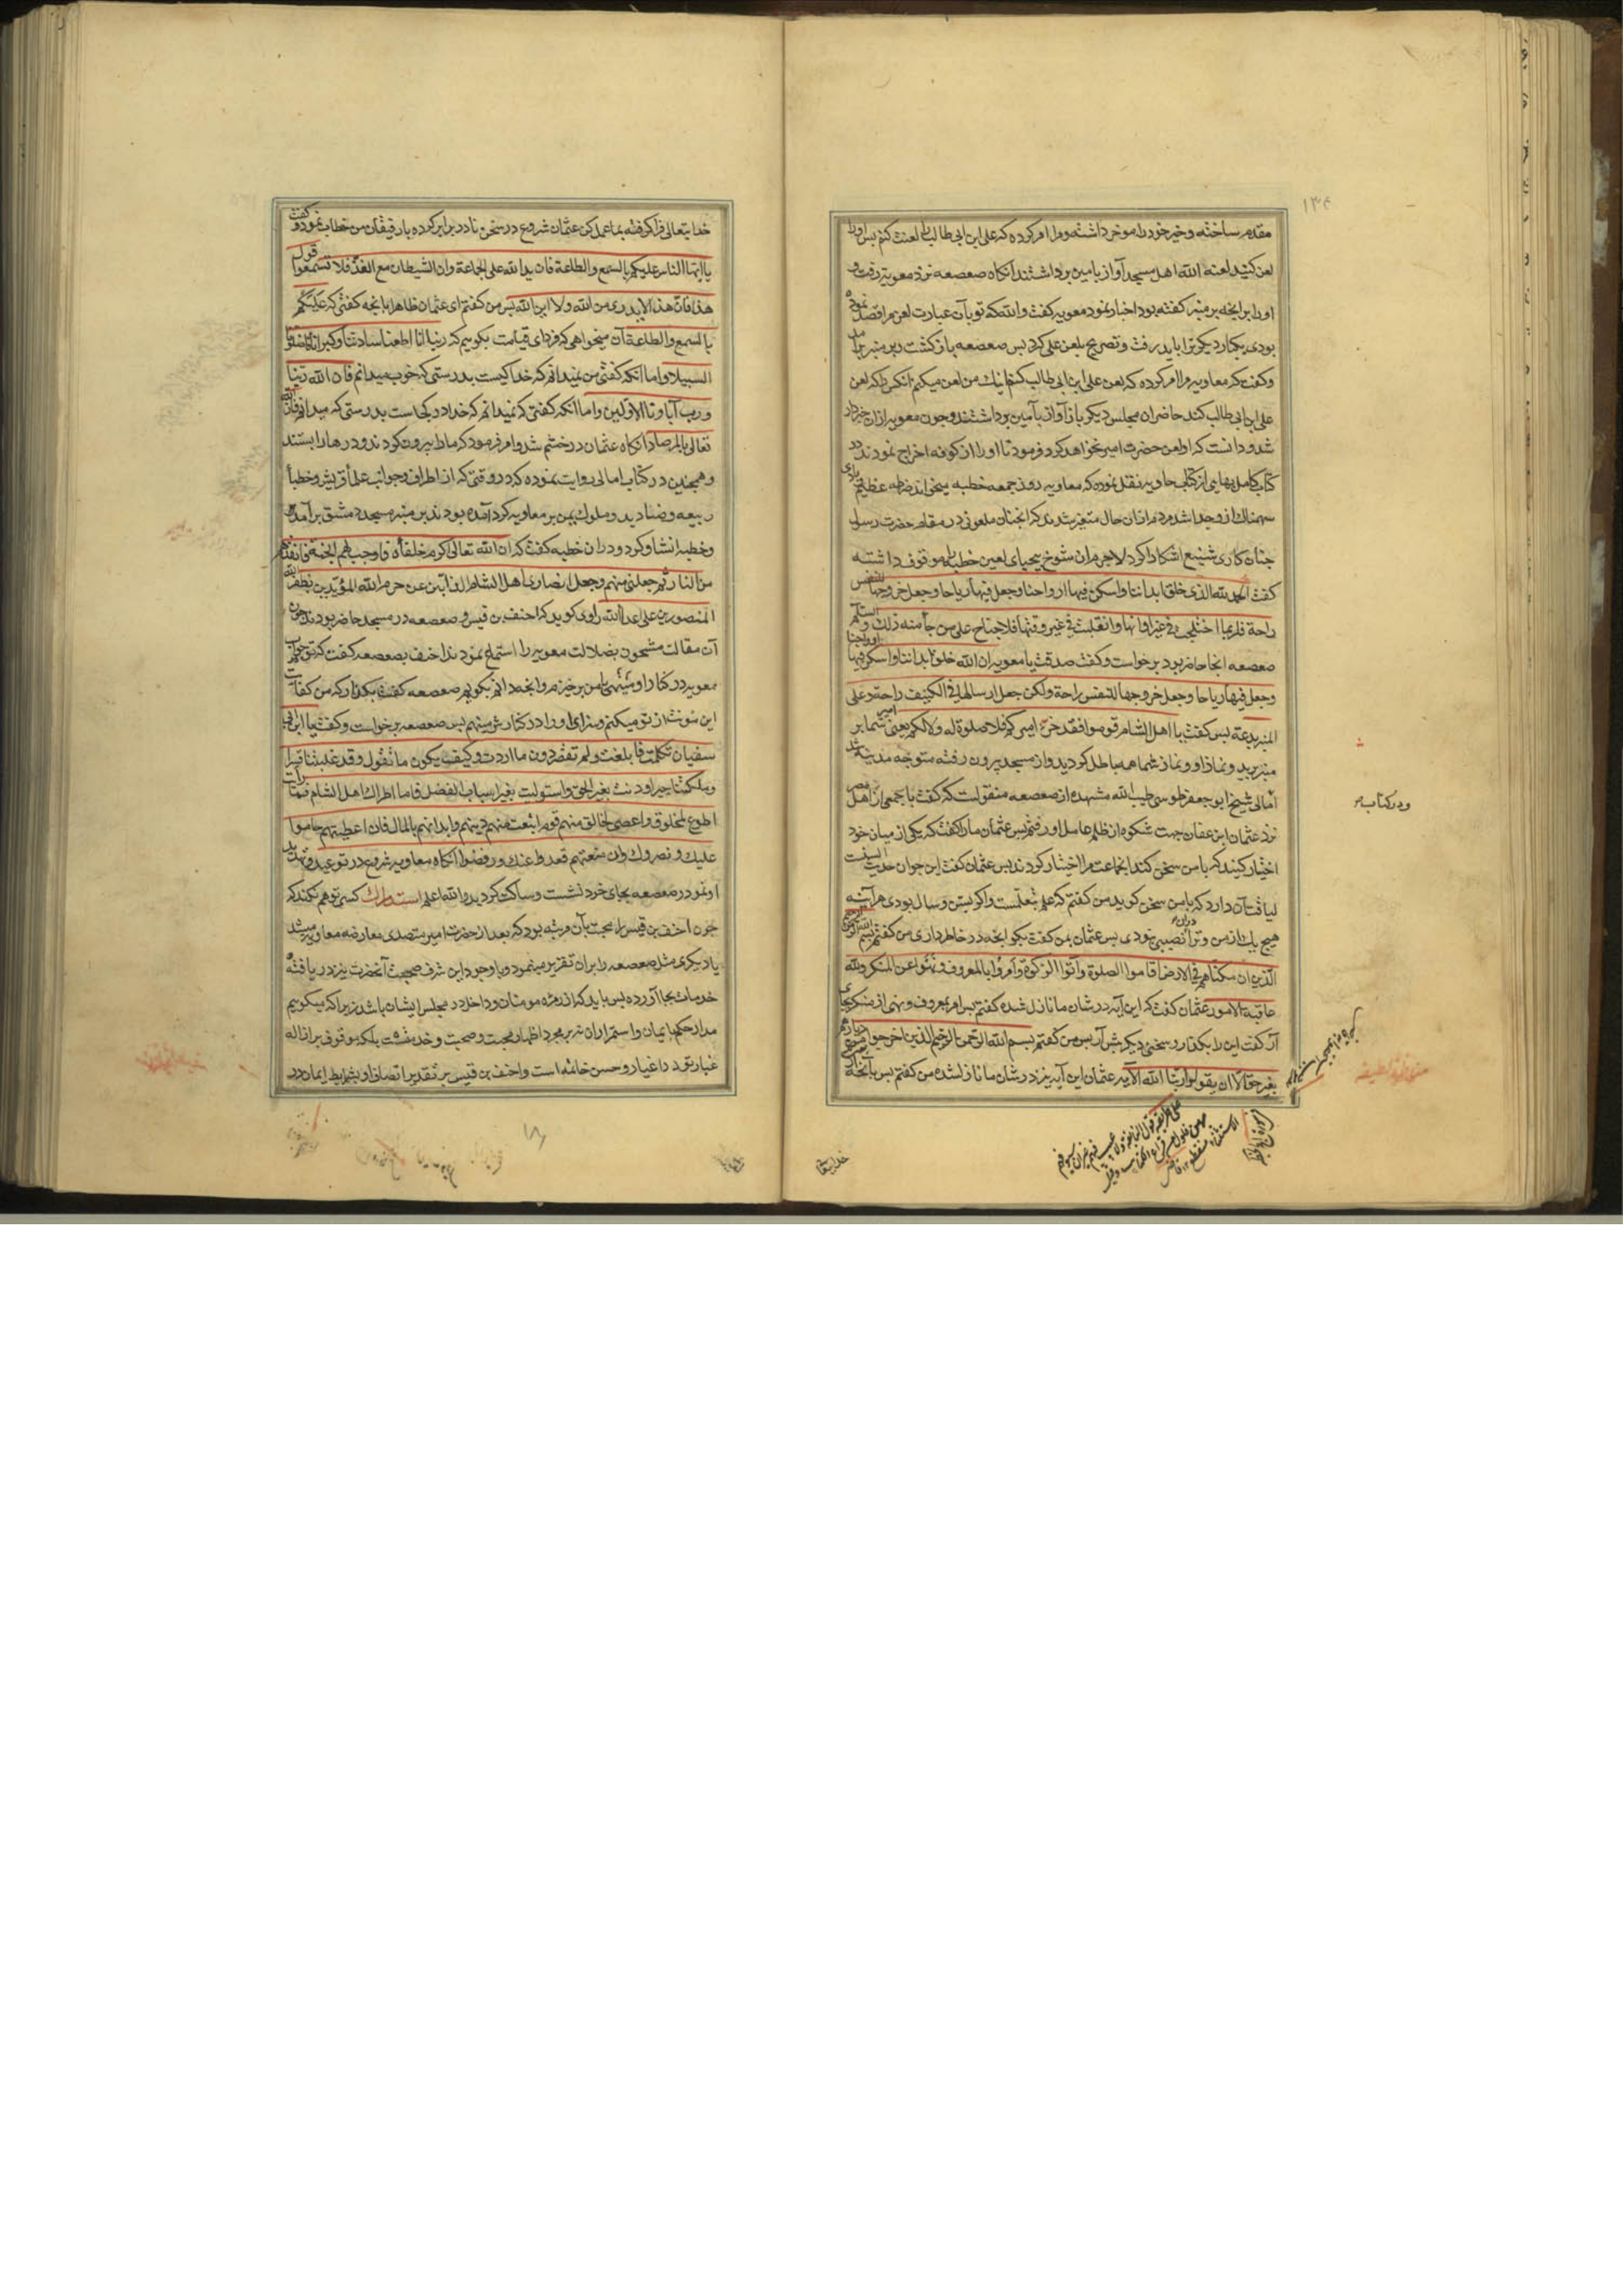 ۱۳۴
مقدم ساخته و خیر خود را موخر داشته و مرا امر کرده که علی ابن ابی طالب را لعنت کنم پس او را
لعن کنید لعنه الله اهل مسجد آواز بامین برداشتند آنکاه صعصعه نزد معویه رفت و
او را بر انچه بر منبر کفته بود اخبار نمود معویه کفت والله که تو بآن عبارت لعن مرا قصد نموده
بودی یکبار دیکر ترا باید رفت و تصریح بلعن علی کرد پس صعصعه باز کشت و بر منبر برامد
و کفت که معاویه مرا امر کرده که لعن علی ابن ابی طالب کنم اینک من لعن میکنم آنکس را که لعن
علی ابن ابی طالب کند حاضران مجلس دیکر باز آواز بآمین برداشتند و چون معویه ازان خبردار
شد و دانست که او لعن حضرت امیر نخواهد کرد فرمود تا او را از کوفه اخراج نمودند و در
کتاب کامل بهایی از کتاب حاویه نقل نموده که معاویه روز جمعه خطبه میخواند ضرطه عظیم
سهمناک ازو جدا شد مردم ازان حال متغیر شدند که انچنان ملعونی در مقام حضرت رسول
چنان کاری شنیع اشکارا کرد لاجرم ان شوخ بیحیای لعین خطبه را موقوف داشته
کفت الحمد لله الذی خلق ابداننا واسکن فیها ارواحنا وجعل فیها ریاحا وجعل خروجها للنفس
راحة فلربما اختلجت فی غیر اوانها وانفلتت فی غیر وقتها فلا جناح علی من جاء منه ذلک والسلام
صعصعه انجا حاضر بود برخواست و کفت صدقت یا معویه ان الله خلق ابداننا واسکن فیها ارواحنا
وجعل فیها ریاحا وجعل خروجها للنفس راحة ولکن جعل ارسالها فی الکنیف راحة وعلی
المنبر بدعة پس کفت یا اهل الشام قوموا فقد خرئ امیرکم فلا صلوة له ولا لکم یعنی امیر شما بر
منبر رید و نماز او و نماز شما همه باطل کردید و از مسجد بیرون رفته متوجه مدینه شد
ودر کتاب
امالی شیخ ابو جعفر طوسی طیب الله مشهده از صعصعه منقولست که کفت با جمعی از اهل مصر
نزد عثمان ابن عفان جهت شکوه از ظلم عامل او رفتم پس عثمان ما را کفت که یکی از میان خود
اختیار کنید که با من سخن کند انجماعت مرا اختیار کردند پس عثمان کفت این جوان حدیث السنست
لیاقت آن دارد که با من سخن کوید من کفتم که علم بتعلمست و اکر بسن و سال بودی هر آینه
هیچ یک از من و ترا دران نصیبی نبودی پس عثمان بمن کفت بکو انچه در خاطر داری من کفتم بسم الله الرحمن الرحیم
الذین ان مکناهم فی الارض اقاموا الصلوة وآتوا الزکوة وامروا بالمعروف ونهوا عن المنکر ولله
عاقبة الامور عثمان کفت که این آیه در شان ما نازل شده کفتم پس امر بمعروف و نهی از منکر بجای
آر کفت این را بکذار و سخنی دیکر پیش آر پس من کفتم بسم الله الرحمن الرحیم الذین اخرجوا من دیارهم
بغیر حق الا ان یقولوا ربنا الله الآیه عثمان این آیه نیز در شان ما نازل شده من کفتم پس با آنچه از
خدایتعالی
خدایتعالی فرا کرفته بما عمل کن عثمان شروع در سخن نادر برابر کرده بارفیقان من خطاب نمود و کفت
یا ایها الناس علیکم بالسمع والطاعة فان ید الله علی الجماعة وان الشیطان مع الفذ فلا تستمعوا قول
هذا فان هذا لا یدری من الله ولا این الله پس من کفتم ای عثمان ظاهرا بانچه کفتی که علیکم
بالسمع والطاعة آن میخواهی که فردای قیامت بکوییم که ربنا انا اطعنا سادتنا وکبراءنا فاضلونا
السبیلا واما انکه کفتی من نمیدانم که خدا کیست بدرستی که خوب میدانم فان الله ربنا
ورب آباءنا الاولین واما انکه کفتی که نمیدانم که خدا در کجاست بدرستی که میدانم فان الله
تعالی بالمرصاد آنکاه عثمان در خشم شد و امر فرمود که ما را بیرون کردند و درها را بستند
و همچنین در کتاب امالی روایت نموده که در وقتی که از اطراف و جوانب علماء قریش و خطباء
ربیعه و صنادید و ملوک یمن بر معاویه کرد آمده بودند بر منبر مسجد دمشق برآمده
و خطبه انشاء کرد و دران خطبه کفت که ان الله تعالی اکرم خلفاءه فاوجب لهم الجنة فانقذهم
من النار ثم جعلنی منهم وجعل انصاری اهل الشام الذابین عن حرم الله المؤیدین بظفر الله
المنصورین علی اعداء الله راوی کوید که احنف بن قیس و صعصعه در مسجد حاضر بودند چون
آن مقالت مشحون بضلالت معویه را استماع نمودند احنف بصعصعه کفت که تو جواب
معویه در کنار او مینهی یا من برخیزم و انچه دانم بکویم صعصعه کفت بکذار که من کفایت
این مؤنت از تو میکنم و سزای او را در کنارش مینهم پس صعصعه برخواست و کفت یا ابن ابی
سفیان تکلمت فابلغت ولم تقصر دون ما اردت وکیف یکون ما تقول وقد غلبتنا قسرا
وملکتنا جبرا ودنت بغیر الحق واستولیت بغیر اسباب الفضل فاما اطراؤک اهل الشام فما رایت
اطوع لمخلوق واعصی لخالق منهم قوم ابتعت منهم دینهم وابدانهم بالمال فان اعطیتهم حاموا
علیک ونصروک وان منعتهم قعدوا عنک ورفضوا آنکاه معاویه شروع در توعید و تهدید
او نمود و صعصعه بجای خود نشست و ساکت کردید والله اعلم استدراک کسی توهم نکند که
چون احنف بن قیس را محبت بآن مرتبه بود که بعد از حضرت امیر متصدی معارضه معاویه میشد
یا دیکری مثل صعصعه را بران تقریر مینمود و با وجود این شرف صحبت آنحضرت نیز دریافته
خدمات بجا آورده پس باید که از زمره مومنان و داخل در مجلس ایشان باشد زیرا که میکوییم
مدار حکم بایمان و استمرار ان نه بر مجرد اظهار محبت و صحبت و خدمتست بلکه موقوف بر ازاله
غبار تودد اغیار و حسن خاتمه است و احنف بن قیس بر تقدیر اتصاف او بشرایط ایمان در